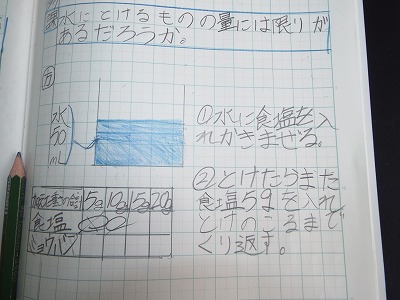 課水にとけるものの量には限りが
あるだろうか。
方
水
50
mL
①水に食塩を入
れかきまぜる。
②とけたらまた
食塩5gを入れ
とけのこるまで
くり返す。
5g 10g 15g 20g
食塩
ミョウバン